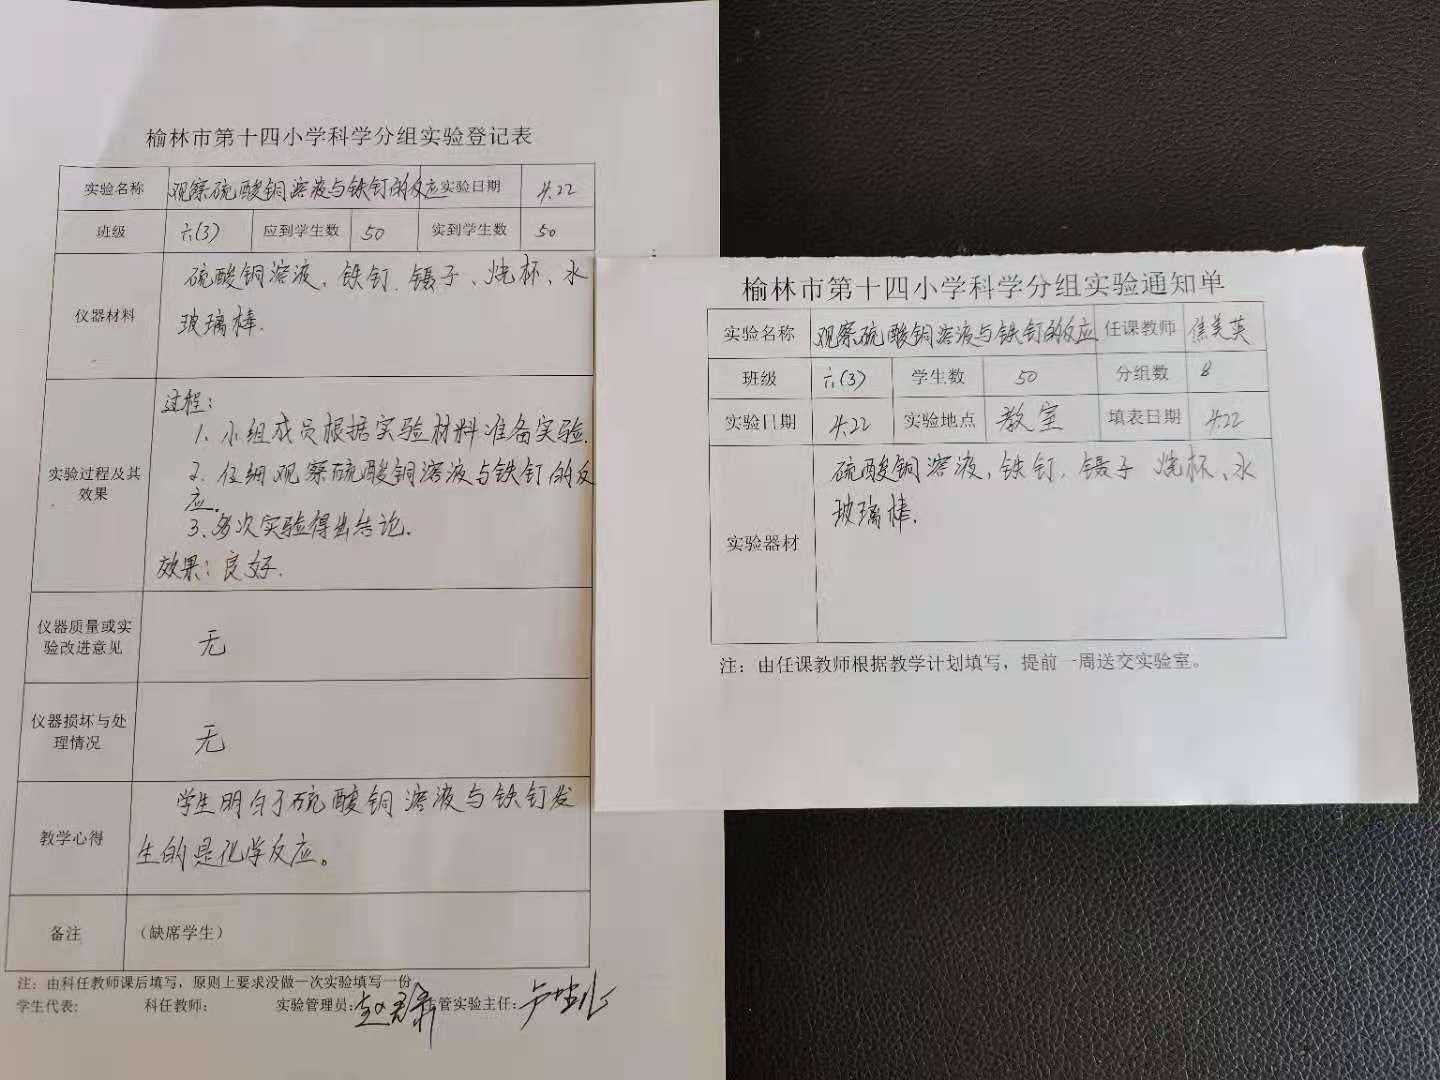 榆林市第十四小学科学分组实验登记表
实验名称 观察硫酸铜溶液与铁钉的反应 实验日期 4.22
班级 六(3) 应到学生数 50 实到学生数 50
仪器材料
硫酸铜溶液、铁钉、镊子、烧杯、水
玻璃棒.
实验过程及其
效果
过程:
1、小组成员根据实验材料准备实验.
2、仔细观察硫酸铜溶液与铁钉的反
应。
3、多次实验得出结论.
效果: 良好.
仪器质量或实
验改进意见
无
仪器损坏与处
理情况
无
教学心得
学生明白了硫酸铜溶液与铁钉发
生的是化学反应。
备注 (缺席学生)
注: 由科任教师课后填写, 原则上要求没做一次实验填写一份
学生代表: 科任教师: 实验管理员: 管实验主任:
榆林市第十四小学科学分组实验通知单
实验名称 观察硫酸铜溶液与铁钉的反应 任课教师 焦美英
班级 六(3) 学生数 50 分组数 8
实验日期 4.22 实验地点 教室 填表日期 4.22
实验器材
硫酸铜溶液, 铁钉, 镊子 烧杯、水
玻璃棒.
注: 由任课教师根据教学计划填写, 提前一周送交实验室。